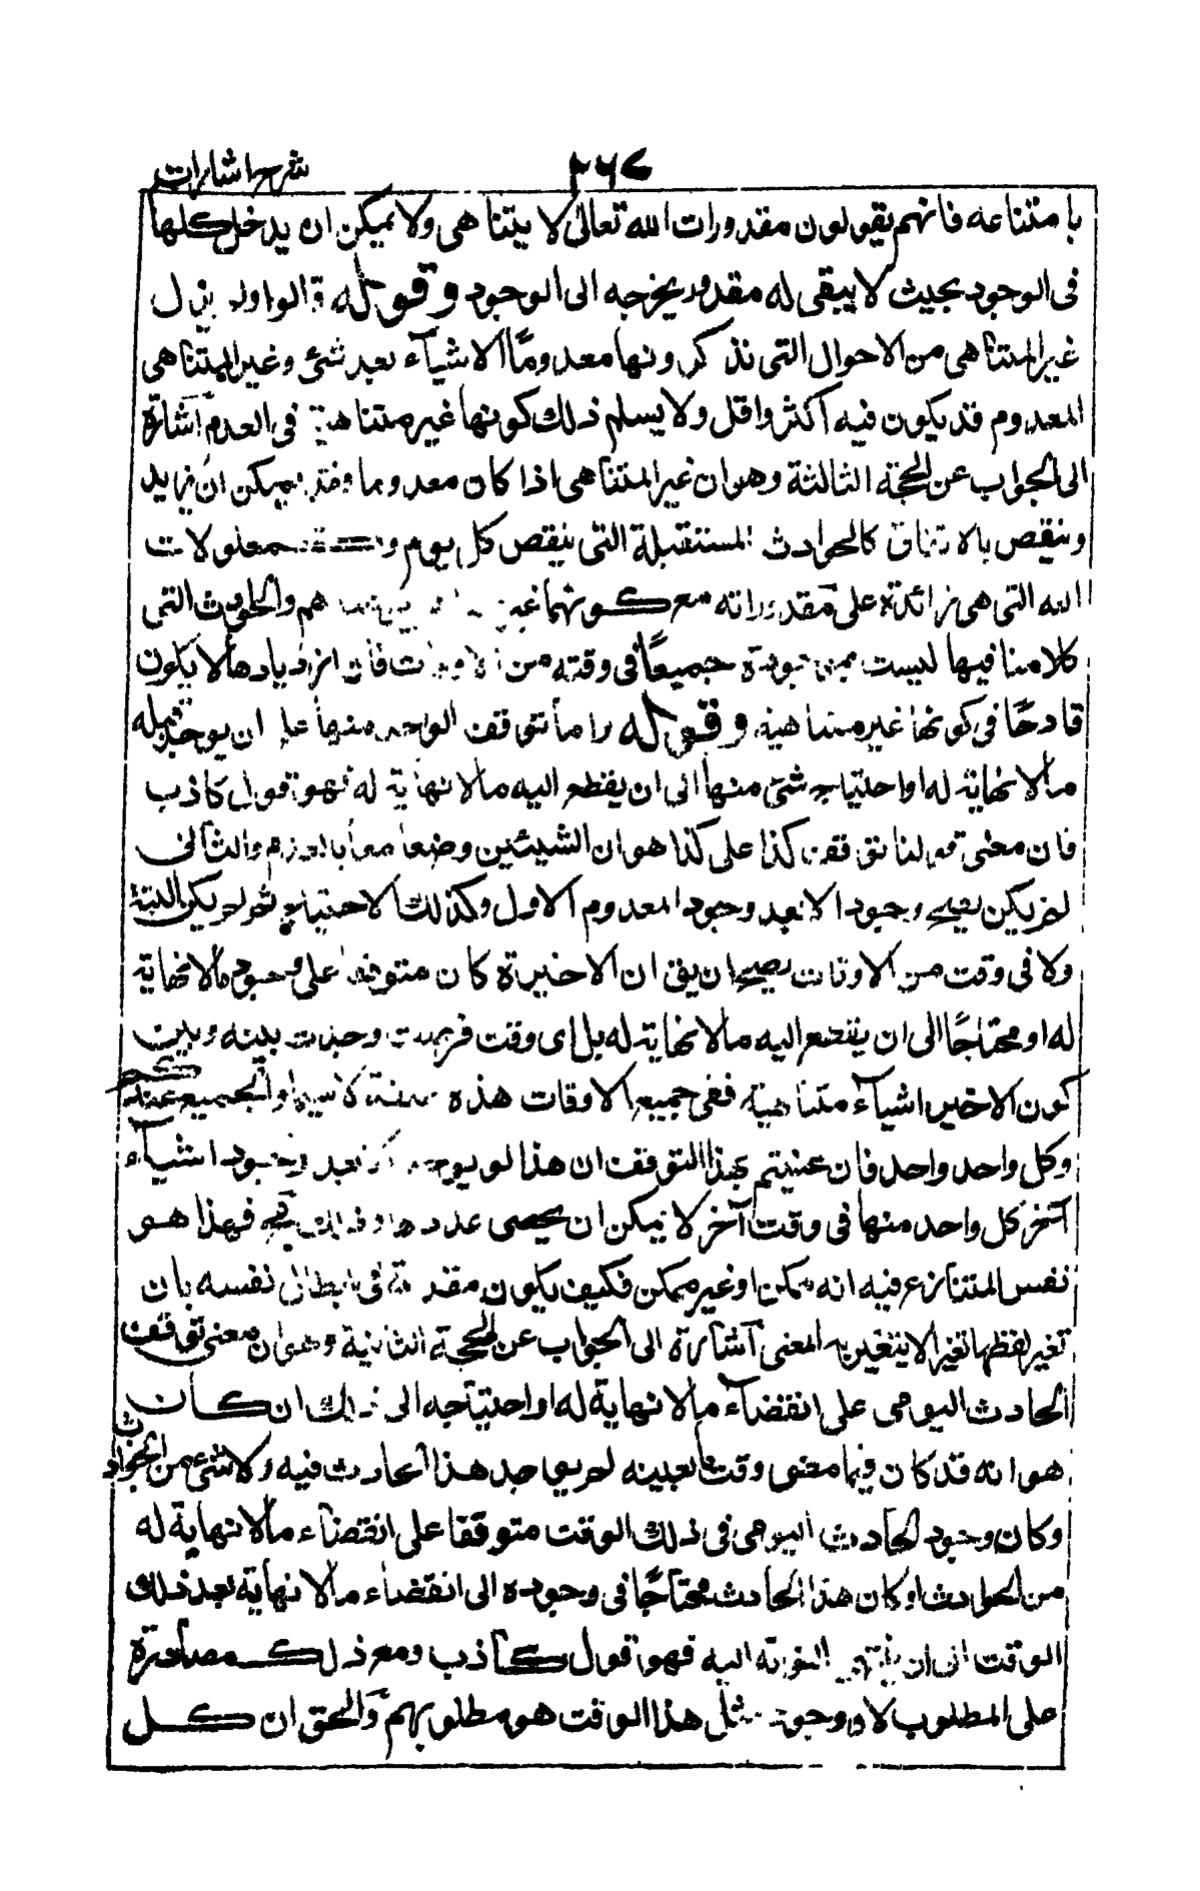 شرح اشارات
٢٦٧
بامتناعه فانهم يقولون مقدورات الله تعالى لا يتناهى ولا يمكن ان يدخل كلها
فى الوجود بحيث لا يبقى له مقدور يخرجه الى الوجود وقوله قالوا ولم يزل
غير المتناهى من الاحوال التى نذكرونها معدوما الا شيآء بعد شئ وغير المتناهى
المعدوم قد يكون فيه اكثر واقل ولا يسلم ذلك كونها غير متناهية فى العدم اشارة
الى الجواب عن الحجة الثالثة وهو ان غير المتناهى اذا كان معدوما وقد يمكن ان يزيد
وينقص بالاتفاق كالحوادث المستقبلة التى ينقص كل يوم و معلولات
الله التى هى زائدة على مقدوراته مع كونهما غير هم والحوادث التى
كلامنا فيها ليست موجودة جميعًا فى وقت من الاوقات فاذن ازديادها لا يكون
قادحًا فى كونها غير متناهية وقوله واما توقف الواحد منها على ان يوجد قبله
مالا نهاية له او احتياج شئ منها الى ان يقطع اليه مالا نهاية له فهو قول كاذب
فان معنى قولنا توقف كذا على كذا هو ان الشيئين وضعا معا بالعدم والثانى
لم يكن يصح وجوده الا بعد وجود المعدوم الاول وكذلك الاحتياج ثم لم يكن البتة
ولا فى وقت من الاوقات يصح ان يق ان الاخيرة كان متوقفا على وجود مالا نهاية
له او محتاجًا الى ان يقطع اليه مالا نهاية له بل اى وقت فرضت وجدت بينه وبين
كون الاخير اشيآء متناهية ففى جميع الاوقات هذه صفته لا سيما والجميع عندكم
وكل واحد واحد فان عنيتم بهذا التوقف ان هذا لم يوجد الا بعد وجود اشيآء
آخر كل واحد منها فى وقت آخر لا يمكن ان يحصى عددها وذلك مح فهذا هو
نفس المتنازع فيه انه ممكن او غير ممكن فكيف يكون مقدمة فى ابطال نفسه بان
تغير لفظها تغيرا لا يتغير به المعنى اشارة الى الجواب عن الحجة الثانية وهو ان معنى توقف
الحادث اليومى على انقضآء مالا نهاية له او احتياجه الى ذلك ان كان
هو انه قد كان فيما مضى وقت ما بعينه لم يوجد هذا الحادث فيه ولا شئ من الحوادث
وكان وجود الحادث اليومى فى ذلك الوقت متوقفا على انقضآء مالا نهاية له
من الحوادث او كان هذا الحادث محتاجًا فى وجوده الى انقضاء مالا نهاية بعد ذلك
الوقت الى ان ينتهى النوبة اليه فهو قول كاذب ومع ذلك مصادرة
على المطلوب لان وجود مثل هذا الوقت هو مطلوبهم والحق ان كل